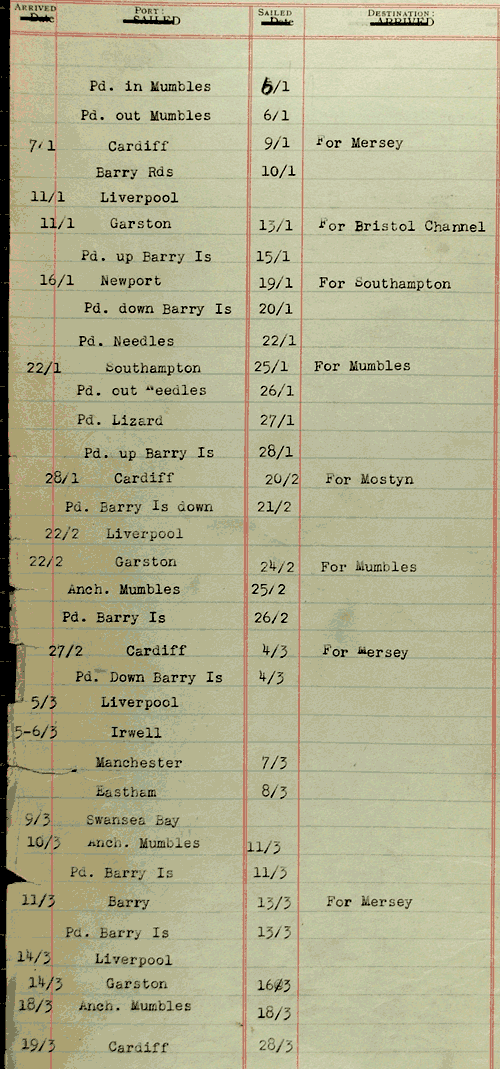 ARRIVED PORT: SAILED DESTINATION:
Date SAILED Date ARRIVED
Pd. in Mumbles 6/1
Pd. out Mumbles 6/1
7/1 Cardiff 9/1 For Mersey
Barry Rds 10/1
11/1 Liverpool
11/1 Garston 13/1 For Bristol Channel
Pd. up Barry Is 15/1
16/1 Newport 19/1 For Southampton
Pd. down Barry Is 20/1
Pd. Needles 22/1
22/1 Southampton 25/1 For Mumbles
Pd. out Needles 26/1
Pd. Lizard 27/1
Pd. up Barry Is 28/1
28/1 Cardiff 20/2 For Mostyn
Pd. Barry Is down 21/2
22/2 Liverpool
22/2 Garston 24/2 For Mumbles
Anch. Mumbles 25/2
Pd. Barry Is 26/2
27/2 Cardiff 4/3 For Mersey
Pd. Down Barry Is 4/3
5/3 Liverpool
5-6/3 Irwell
Manchester 7/3
Eastham 8/3
9/3 Swansea Bay
10/3 Anch. Mumbles 11/3
Pd. Barry Is 11/3
11/3 Barry 13/3 For Mersey
Pd. Barry Is 13/3
14/3 Liverpool
14/3 Garston 16/3
18/3 Anch. Mumbles 18/3
19/3 Cardiff 28/3